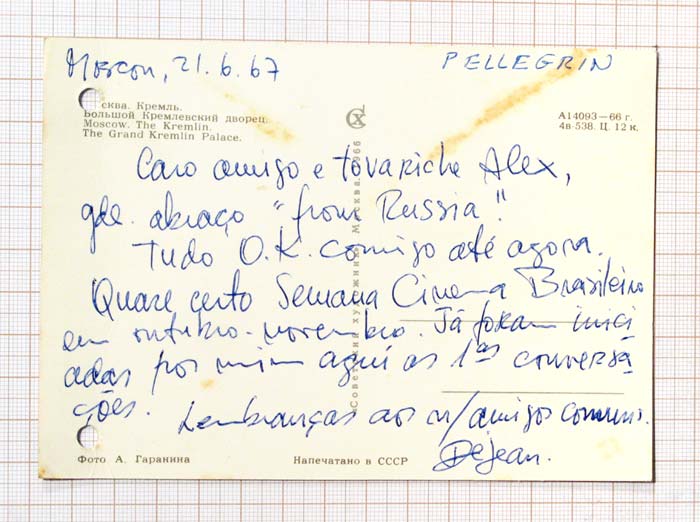 Moscou, 21.6.67
PELLEGRIN
сква. Кремль.
Большой Кремлевский дворец.
Moscow. The Kremlin.
The Grand Kremlin Palace.
А14093—66 г.
4в-538. Ц. 12 к.
Caro amigo e tovariche Alex,
gde. abraço "from Russia".
Tudo O.K. comigo até agora.
Quase certo Semana Cinema Brasileiro
em outubro-novembro. Já foram inici
adas por mim aqui as 1as conversa
ções. Lembranças aos n/amigos comuns.
Dejean.
«Советский художник». Москва. 1966
Фото А. Гаранина
Напечатано в СССР